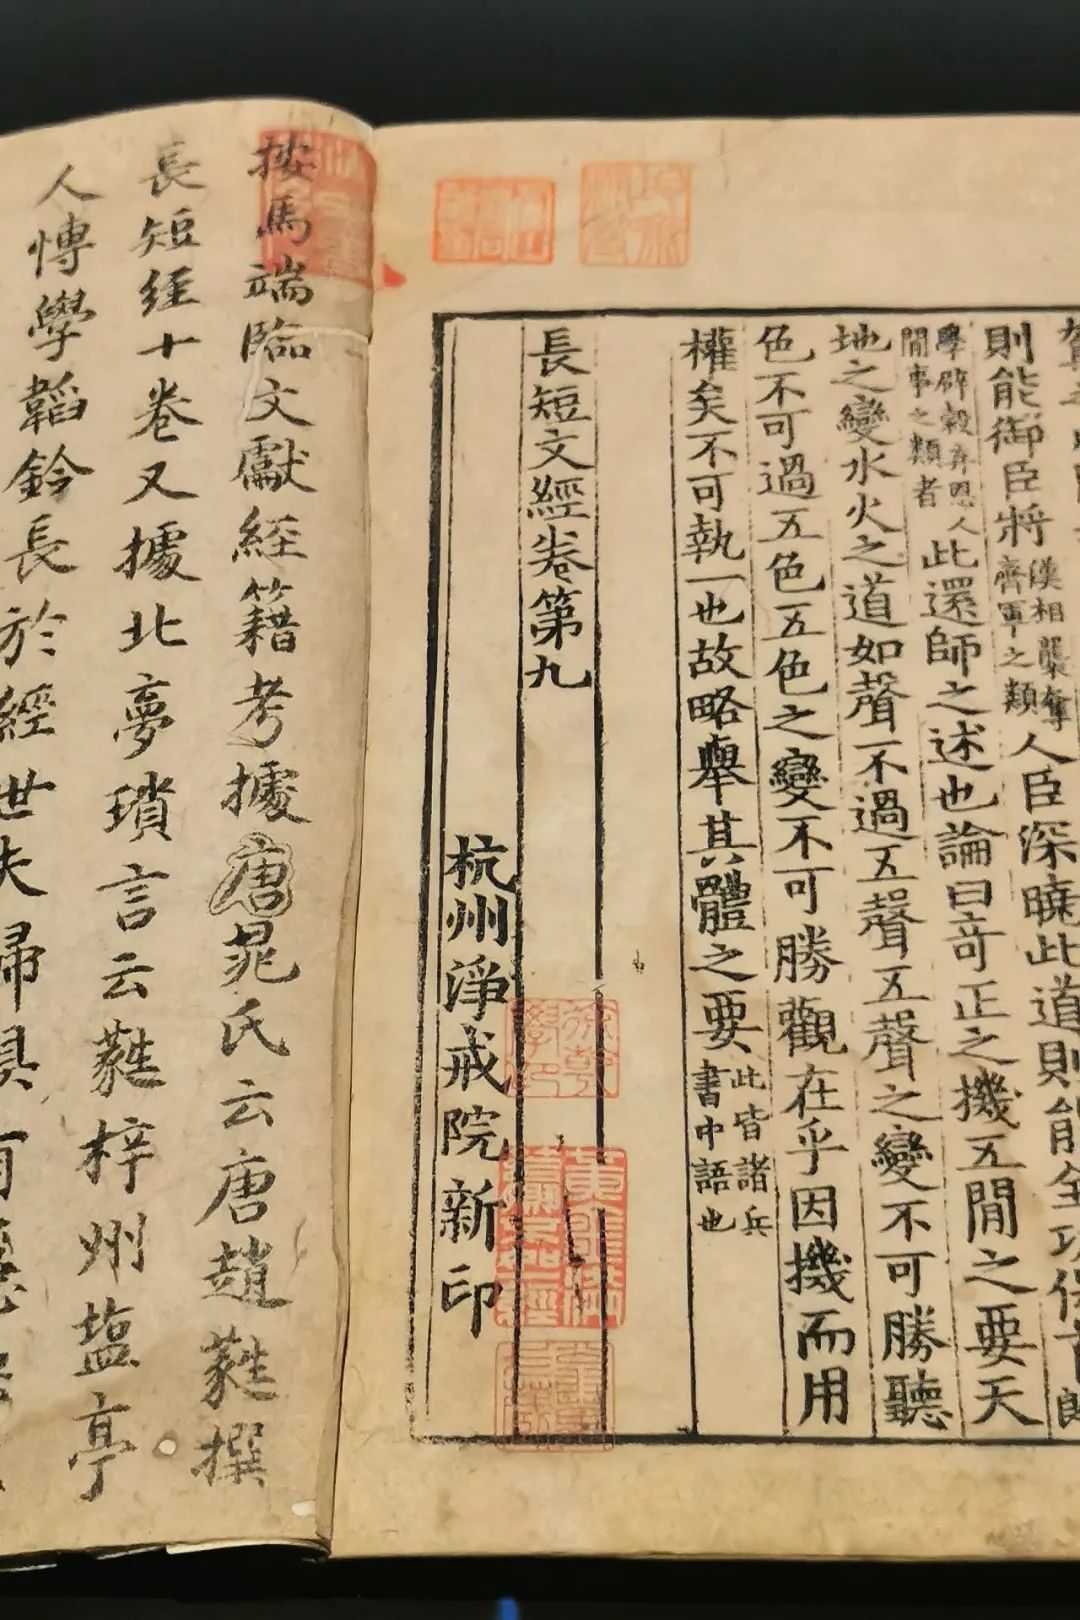 則能御臣將漢相齊軍之類襲奪人臣深曉此道則能全功保首
學辟穀弃人閒事之類者此還師之述也論曰奇正之機五閒之要天
地之變水火之道如聲不過五聲五聲之變不可勝聽
色不可過五色五色之變不可勝觀在乎因機而用
權矣不可執一也故略舉其體之要此皆諸兵書中語也
長短文經卷第九
杭州淨戒院新印
按馬端臨文獻經籍考據唐晁氏云唐趙蕤撰
長短經十卷又據北夢瑣言云蕤梓州塩亭
人愽學韜鈐長於經世夫婦俱有